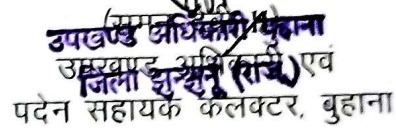 उपखण्ड अधिकारी बुहाना
उपखण्ड अधिकारी एवं
जिला झुन्झुनू (राज.)
पदेन सहायक कलक्टर, बुहाना